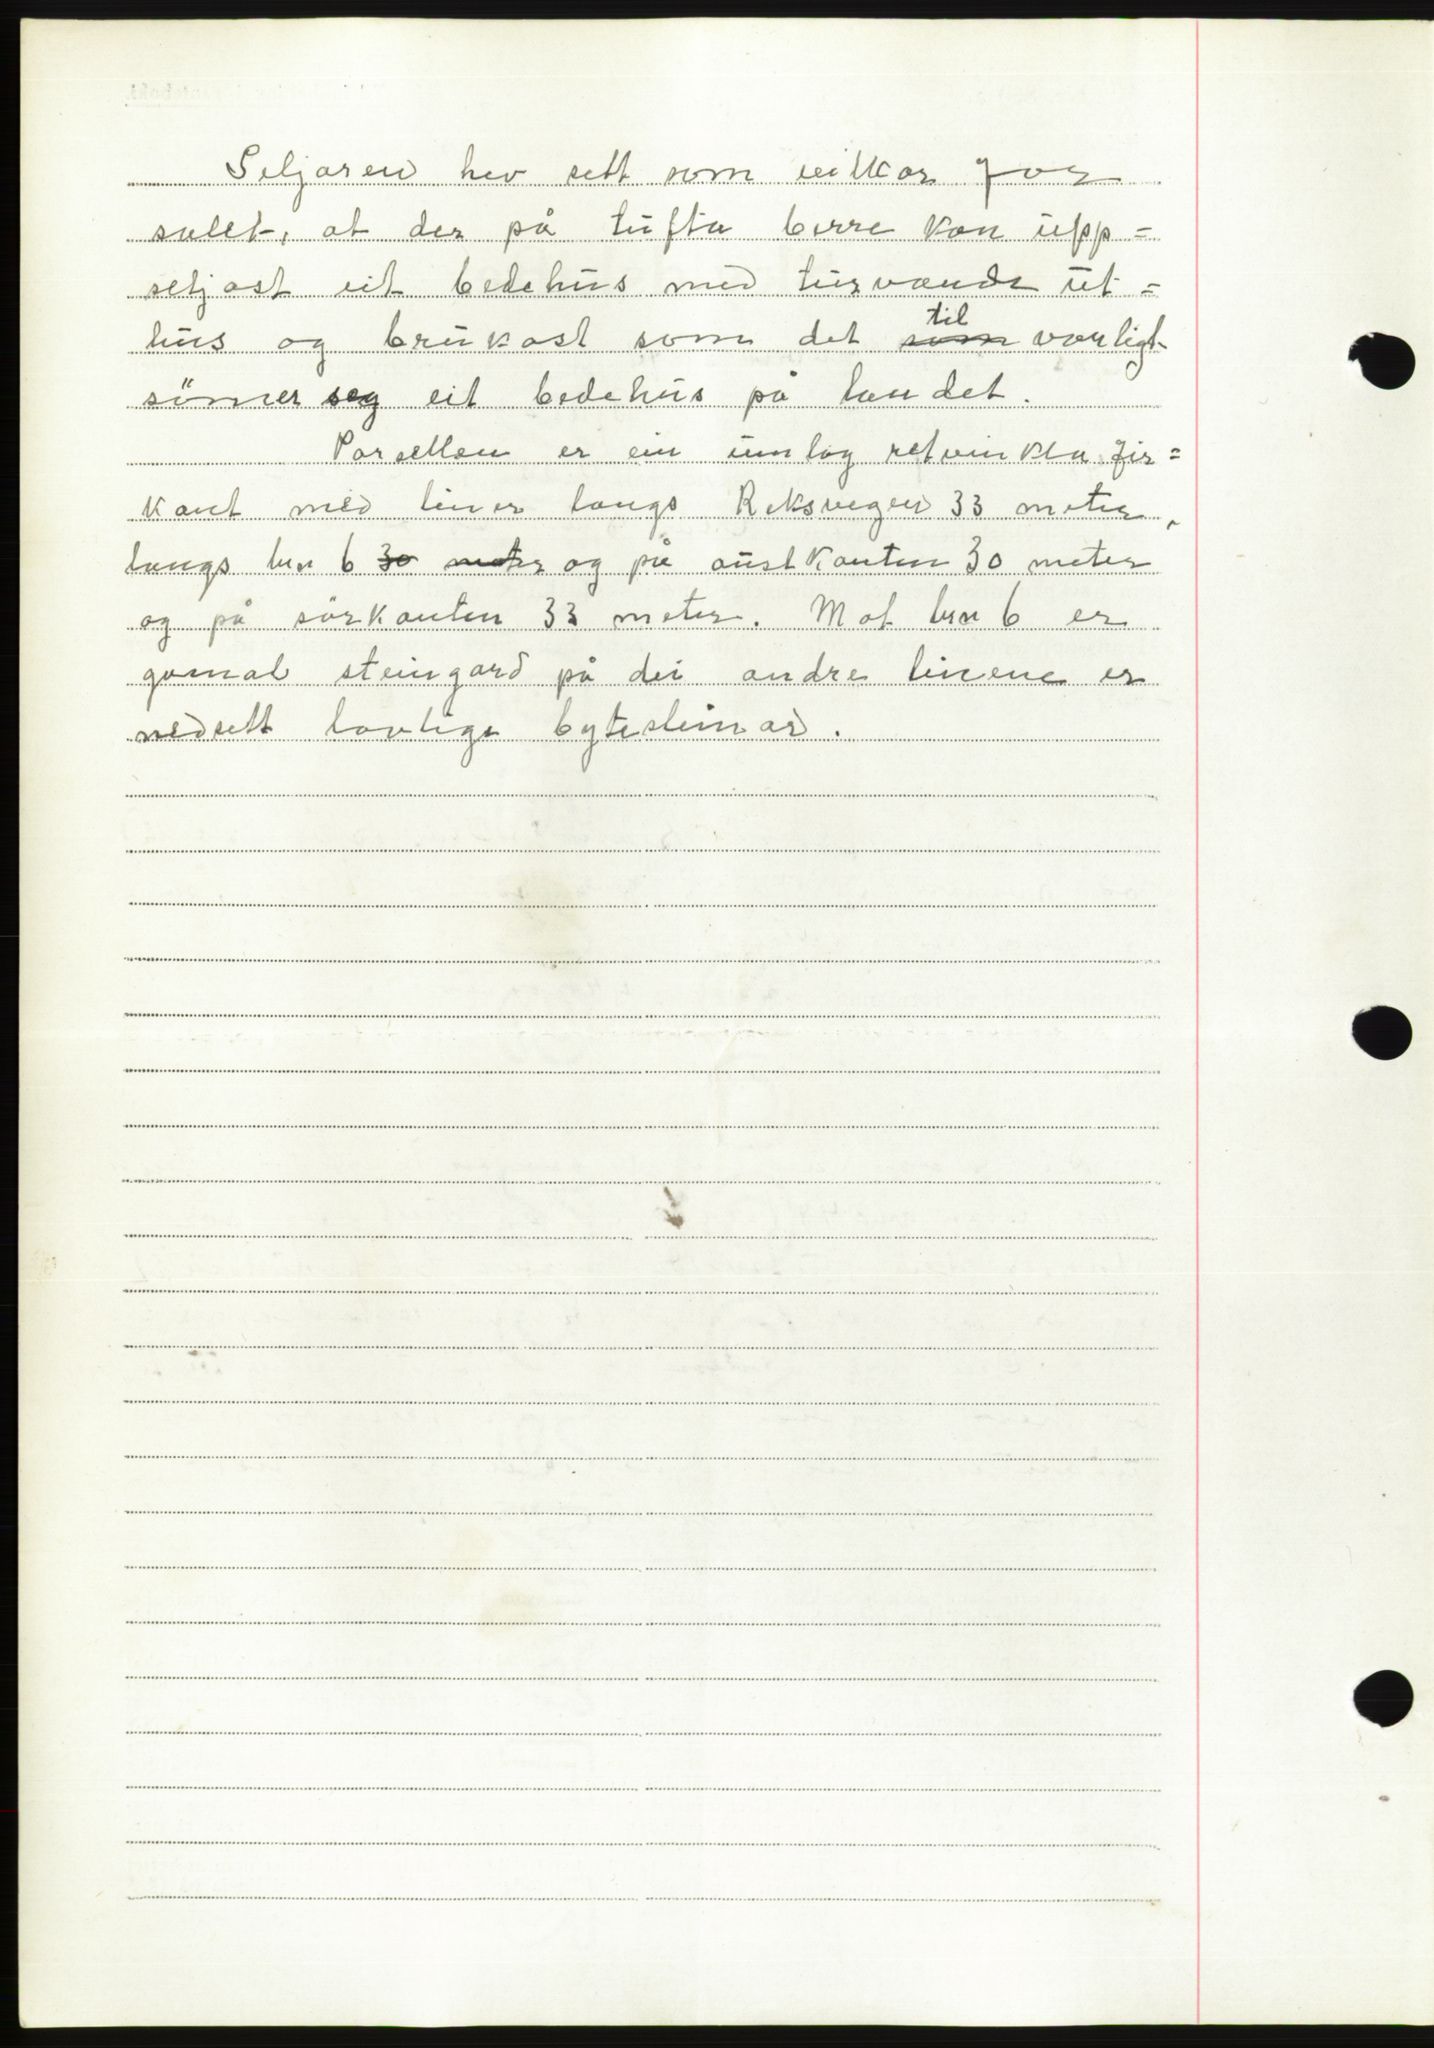 Seljaren hev sett som vilkor for
salet, at der på tufta berre kan upp=
setjast eit bedehus med turvande ut=
hus og brukast som det ~~som~~ til vanligt
sömer seg eit bedehus på landet.
Parsellen er ein umlag retvinkla fir=
kant med liner langs Riksvegen 33 meter,
langs brn 6 ~~30 meter~~ og på austkanten 30 meter
og på sörkanten 33 meter. Mot brn 6 er
gamal steingard på dei andre linene er
nedsett lovlige bytesteinar.